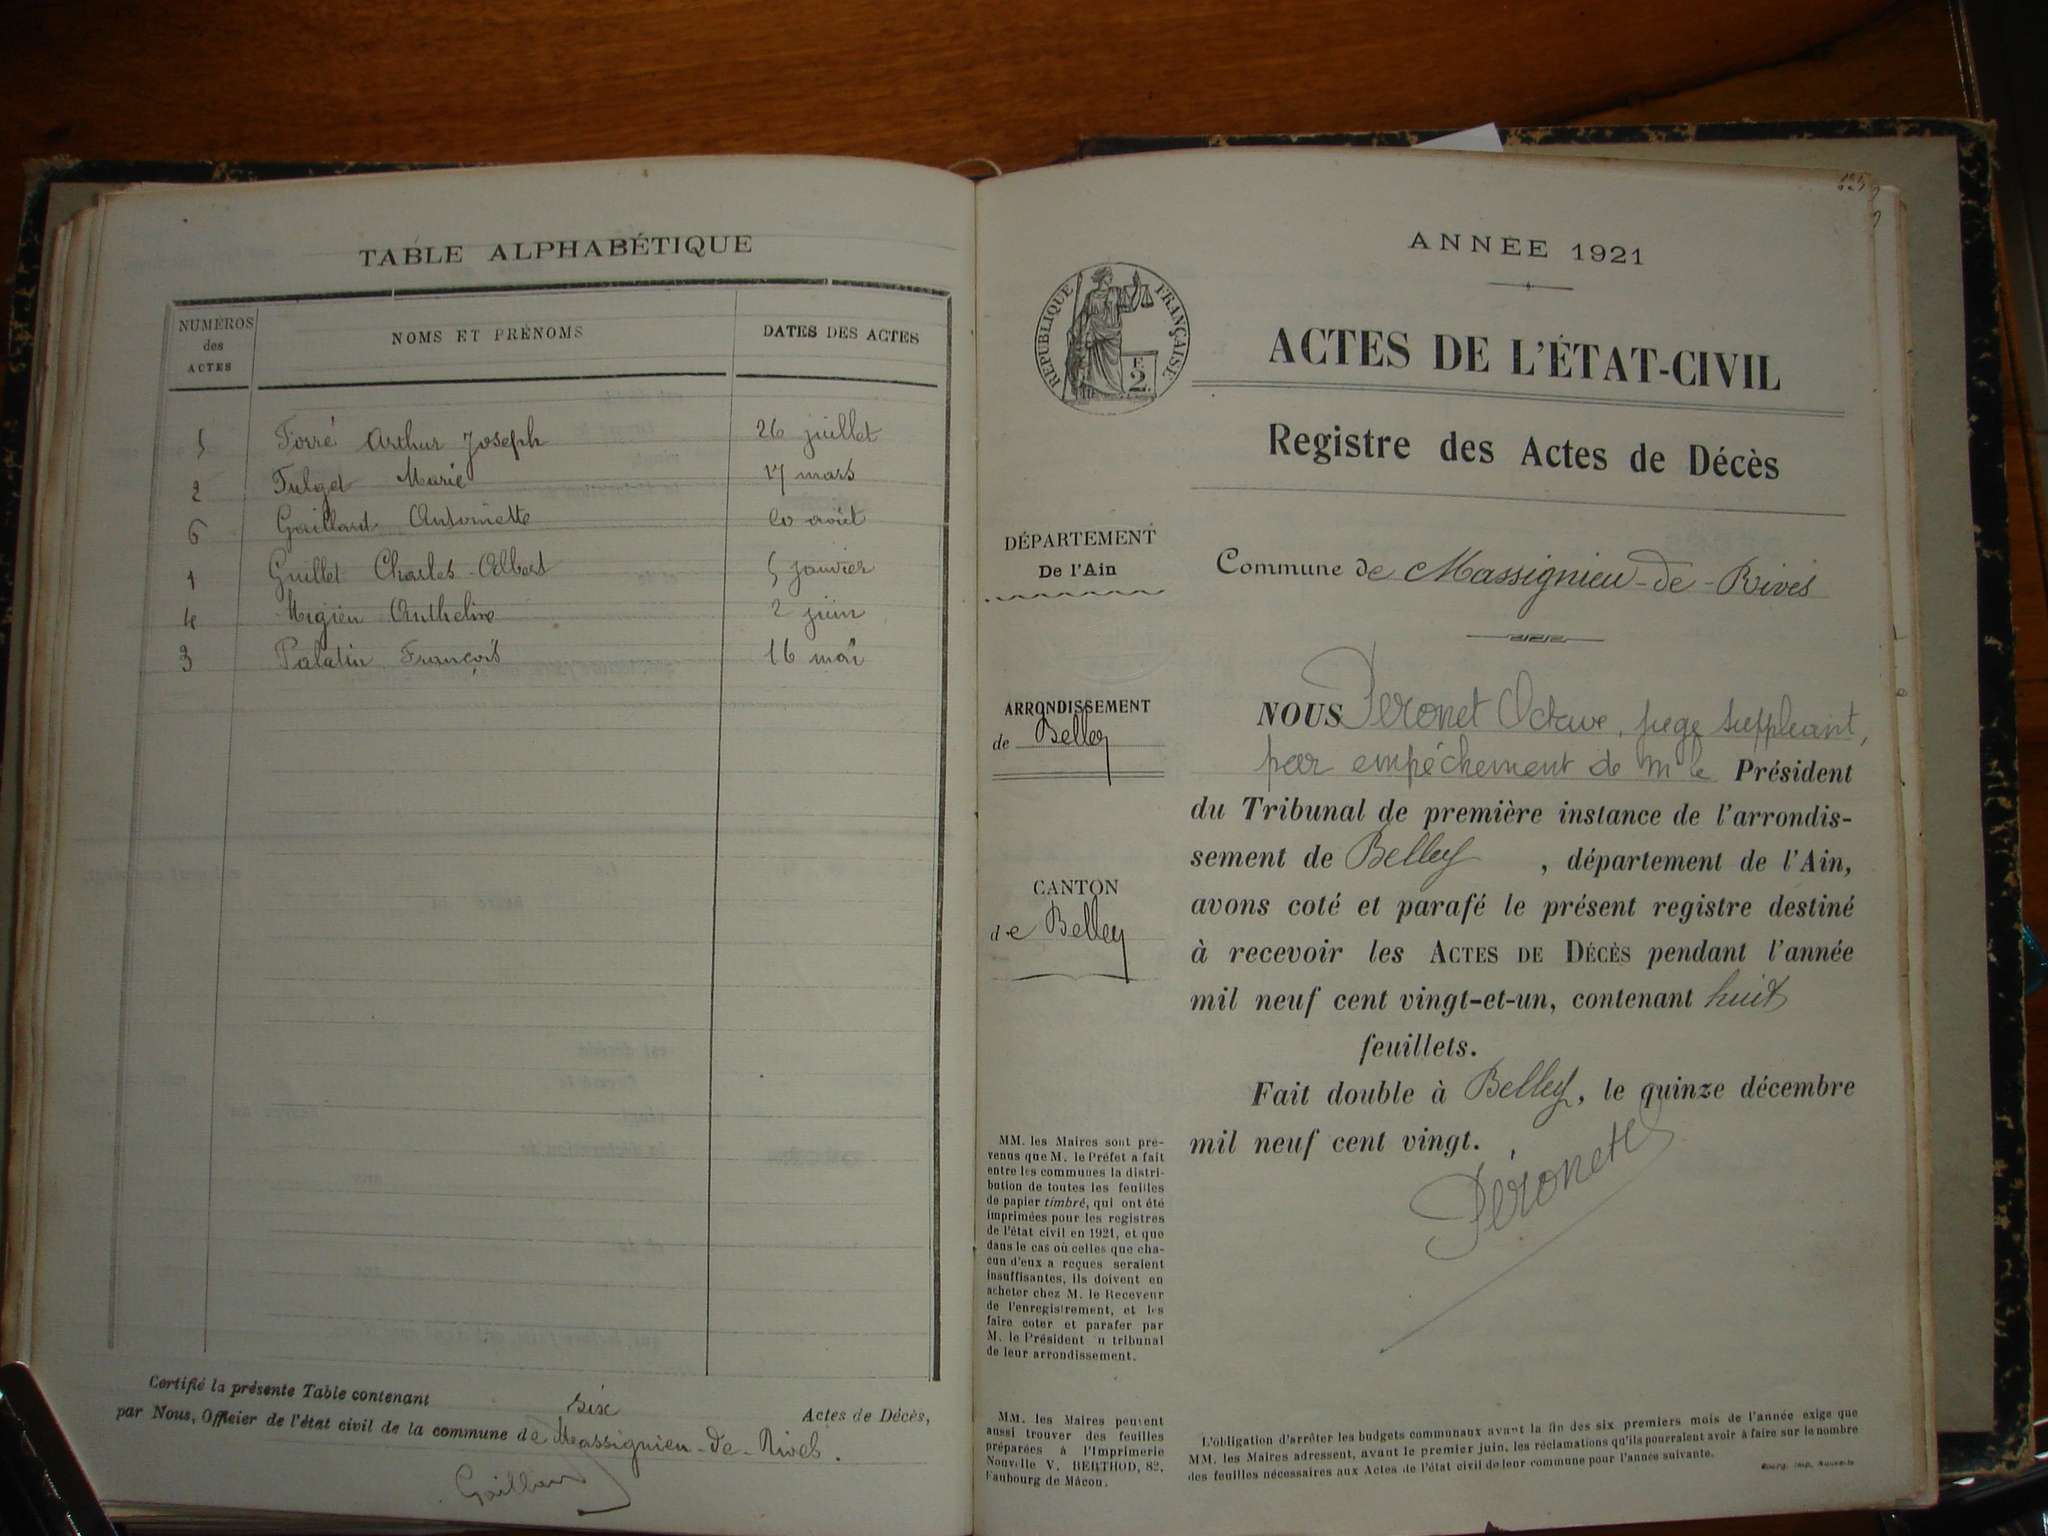 TABLE ALPHABÉTIQUE
NUMÉROS des ACTES NOMS ET PRÉNOMS DATES DES ACTES
5 Forré Arthur Joseph 26 juillet
2 Fulget Marie 17 mars
6 Gaillard Antoinette 20 août
1 Guillet Charles-Albert 5 janvier
4 Migieu Anthelme 2 juin
3 Palatin François 16 mai
Certifié la présente Table contenant six Actes de Décès,
par Nous, Officier de l'état civil de la commune de Massignieu-de-Rives.
Gaillard
ANNÉE 1921
RÉPUBLIQUE FRANÇAISE
2
ACTES DE L'ÉTAT-CIVIL
Registre des Actes de Décès
DÉPARTEMENT
De l'Ain
Commune de Massignieu-de-Rives
ARRONDISSEMENT
de Belley
CANTON
de Belley
NOUS Péronet Octave, juge suppléant,
par empêchement de M le Président
du Tribunal de première instance de l'arrondis-
sement de Belley, département de l'Ain,
avons coté et parafé le présent registre destiné
à recevoir les ACTES DE DÉCÈS pendant l'année
mil neuf cent vingt-et-un, contenant huit
feuillets.
Fait double à Belley, le quinze décembre
mil neuf cent vingt.
Péronet
MM. les Maires sont pré-
venus que M. le Préfet a fait
entre les communes la distri-
bution de toutes les feuilles
de papier timbré, qui ont été
imprimées pour les registres
de l'état civil en 1921, et que
dans le cas où celles que cha-
cun d'eux a reçues seraient
insuffisantes, ils doivent en
acheter chez M. le Receveur
de l'enregistrement, et les
faire coter et parafer par
M. le Président u tribunal
de leur arrondissement.
MM. les Maires peuvent
aussi trouver des feuilles
préparées à l'Imprimerie
Nouvelle V. BERTHOD, 82,
Faubourg de Mâcon.
L'obligation d'arrêter les budgets communaux avant la fin des six premiers mois de l'année exige que
MM. les Maires adressent, avant le premier juin, les réclamations qu'ils pourraient avoir à faire sur le nombre
des feuilles nécessaires aux Actes de l'état civil de leur commune pour l'année suivante.
Bourg, Imp. Nouvelle